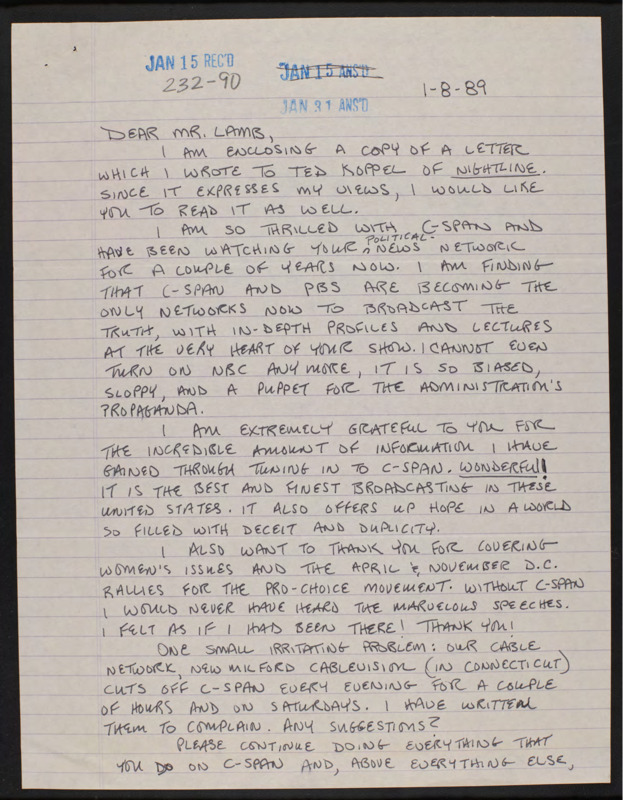 JAN 15 REC'D
232-90
JAN 15 ANS'D
JAN 31 ANS'D
1-8-89
DEAR MR. LAMB,
I AM ENCLOSING A COPY OF A LETTER
WHICH I WROTE TO TED KOPPEL OF NIGHTLINE.
SINCE IT EXPRESSES MY VIEWS, I WOULD LIKE
YOU TO READ IT AS WELL.
I AM SO THRILLED WITH C-SPAN AND
HAVE BEEN WATCHING YOUR POLITICAL NEWS NETWORK
FOR A COUPLE OF YEARS NOW. I AM FINDING
THAT C-SPAN AND PBS ARE BECOMING THE
ONLY NETWORKS NOW TO BROADCAST THE
TRUTH, WITH IN-DEPTH PROFILES AND LECTURES
AT THE VERY HEART OF YOUR SHOW. I CANNOT EVEN
TURN ON NBC ANYMORE, IT IS SO BIASED,
SLOPPY, AND A PUPPET FOR THE ADMINISTRATION'S
PROPAGANDA.
I AM EXTREMELY GRATEFUL TO YOU FOR
THE INCREDIBLE AMOUNT OF INFORMATION I HAVE
GAINED THROUGH TUNING IN TO C-SPAN. WONDERFUL!
IT IS THE BEST AND FINEST BROADCASTING IN THESE
UNITED STATES. IT ALSO OFFERS UP HOPE IN A WORLD
SO FILLED WITH DECEIT AND DUPLICITY.
I ALSO WANT TO THANK YOU FOR COVERING
WOMEN'S ISSUES AND THE APRIL & NOVEMBER D.C.
RALLIES FOR THE PRO-CHOICE MOVEMENT. WITHOUT C-SPAN
I WOULD NEVER HAVE HEARD THE MARVELOUS SPEECHES.
I FELT AS IF I HAD BEEN THERE! THANK YOU!
ONE SMALL IRRITATING PROBLEM: OUR CABLE
NETWORK, NEW MILFORD CABLEVISION (IN CONNECTICUT)
CUTS OFF C-SPAN EVERY EVENING FOR A COUPLE
OF HOURS AND ON SATURDAYS. I HAVE WRITTEN
THEM TO COMPLAIN. ANY SUGGESTIONS?
PLEASE CONTINUE DOING EVERYTHING THAT
YOU DO ON C-SPAN AND, ABOVE EVERYTHING ELSE,